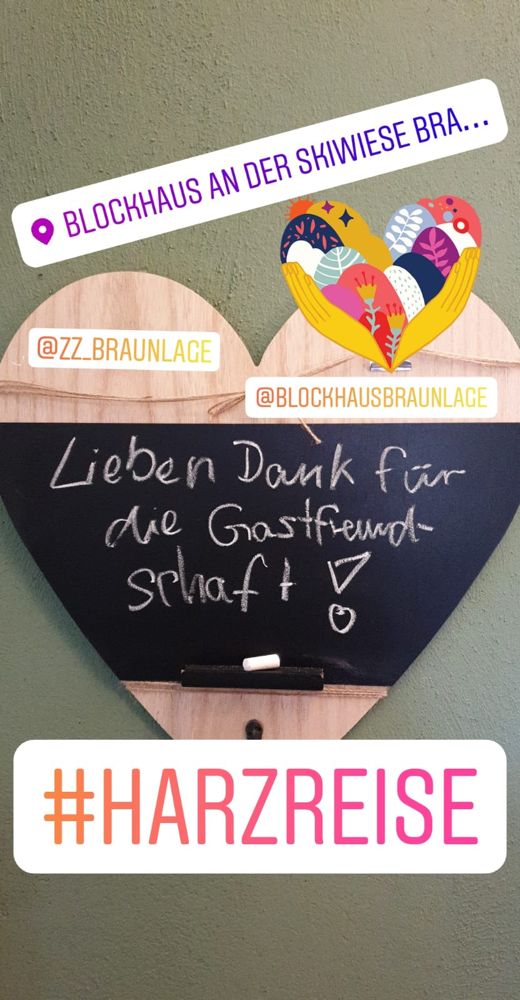 BLOCKHAUS AN DER SKIWIESE BRA...
@ZZ_BRAUNLAGE
@BLOCKHAUSBRAUNLAGE
Lieben Dank für
die Gastfreund-
schaft!
#HARZREISE